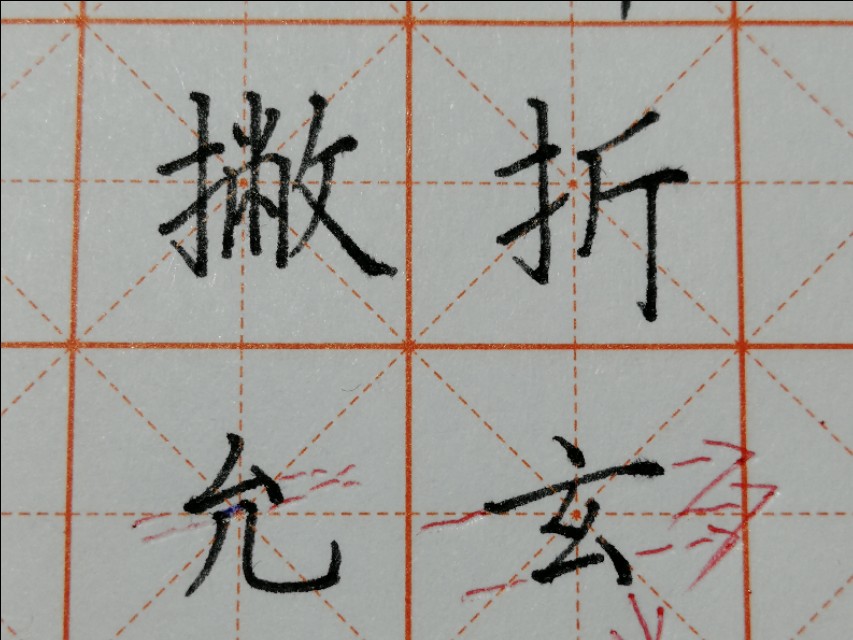 撇折
允玄